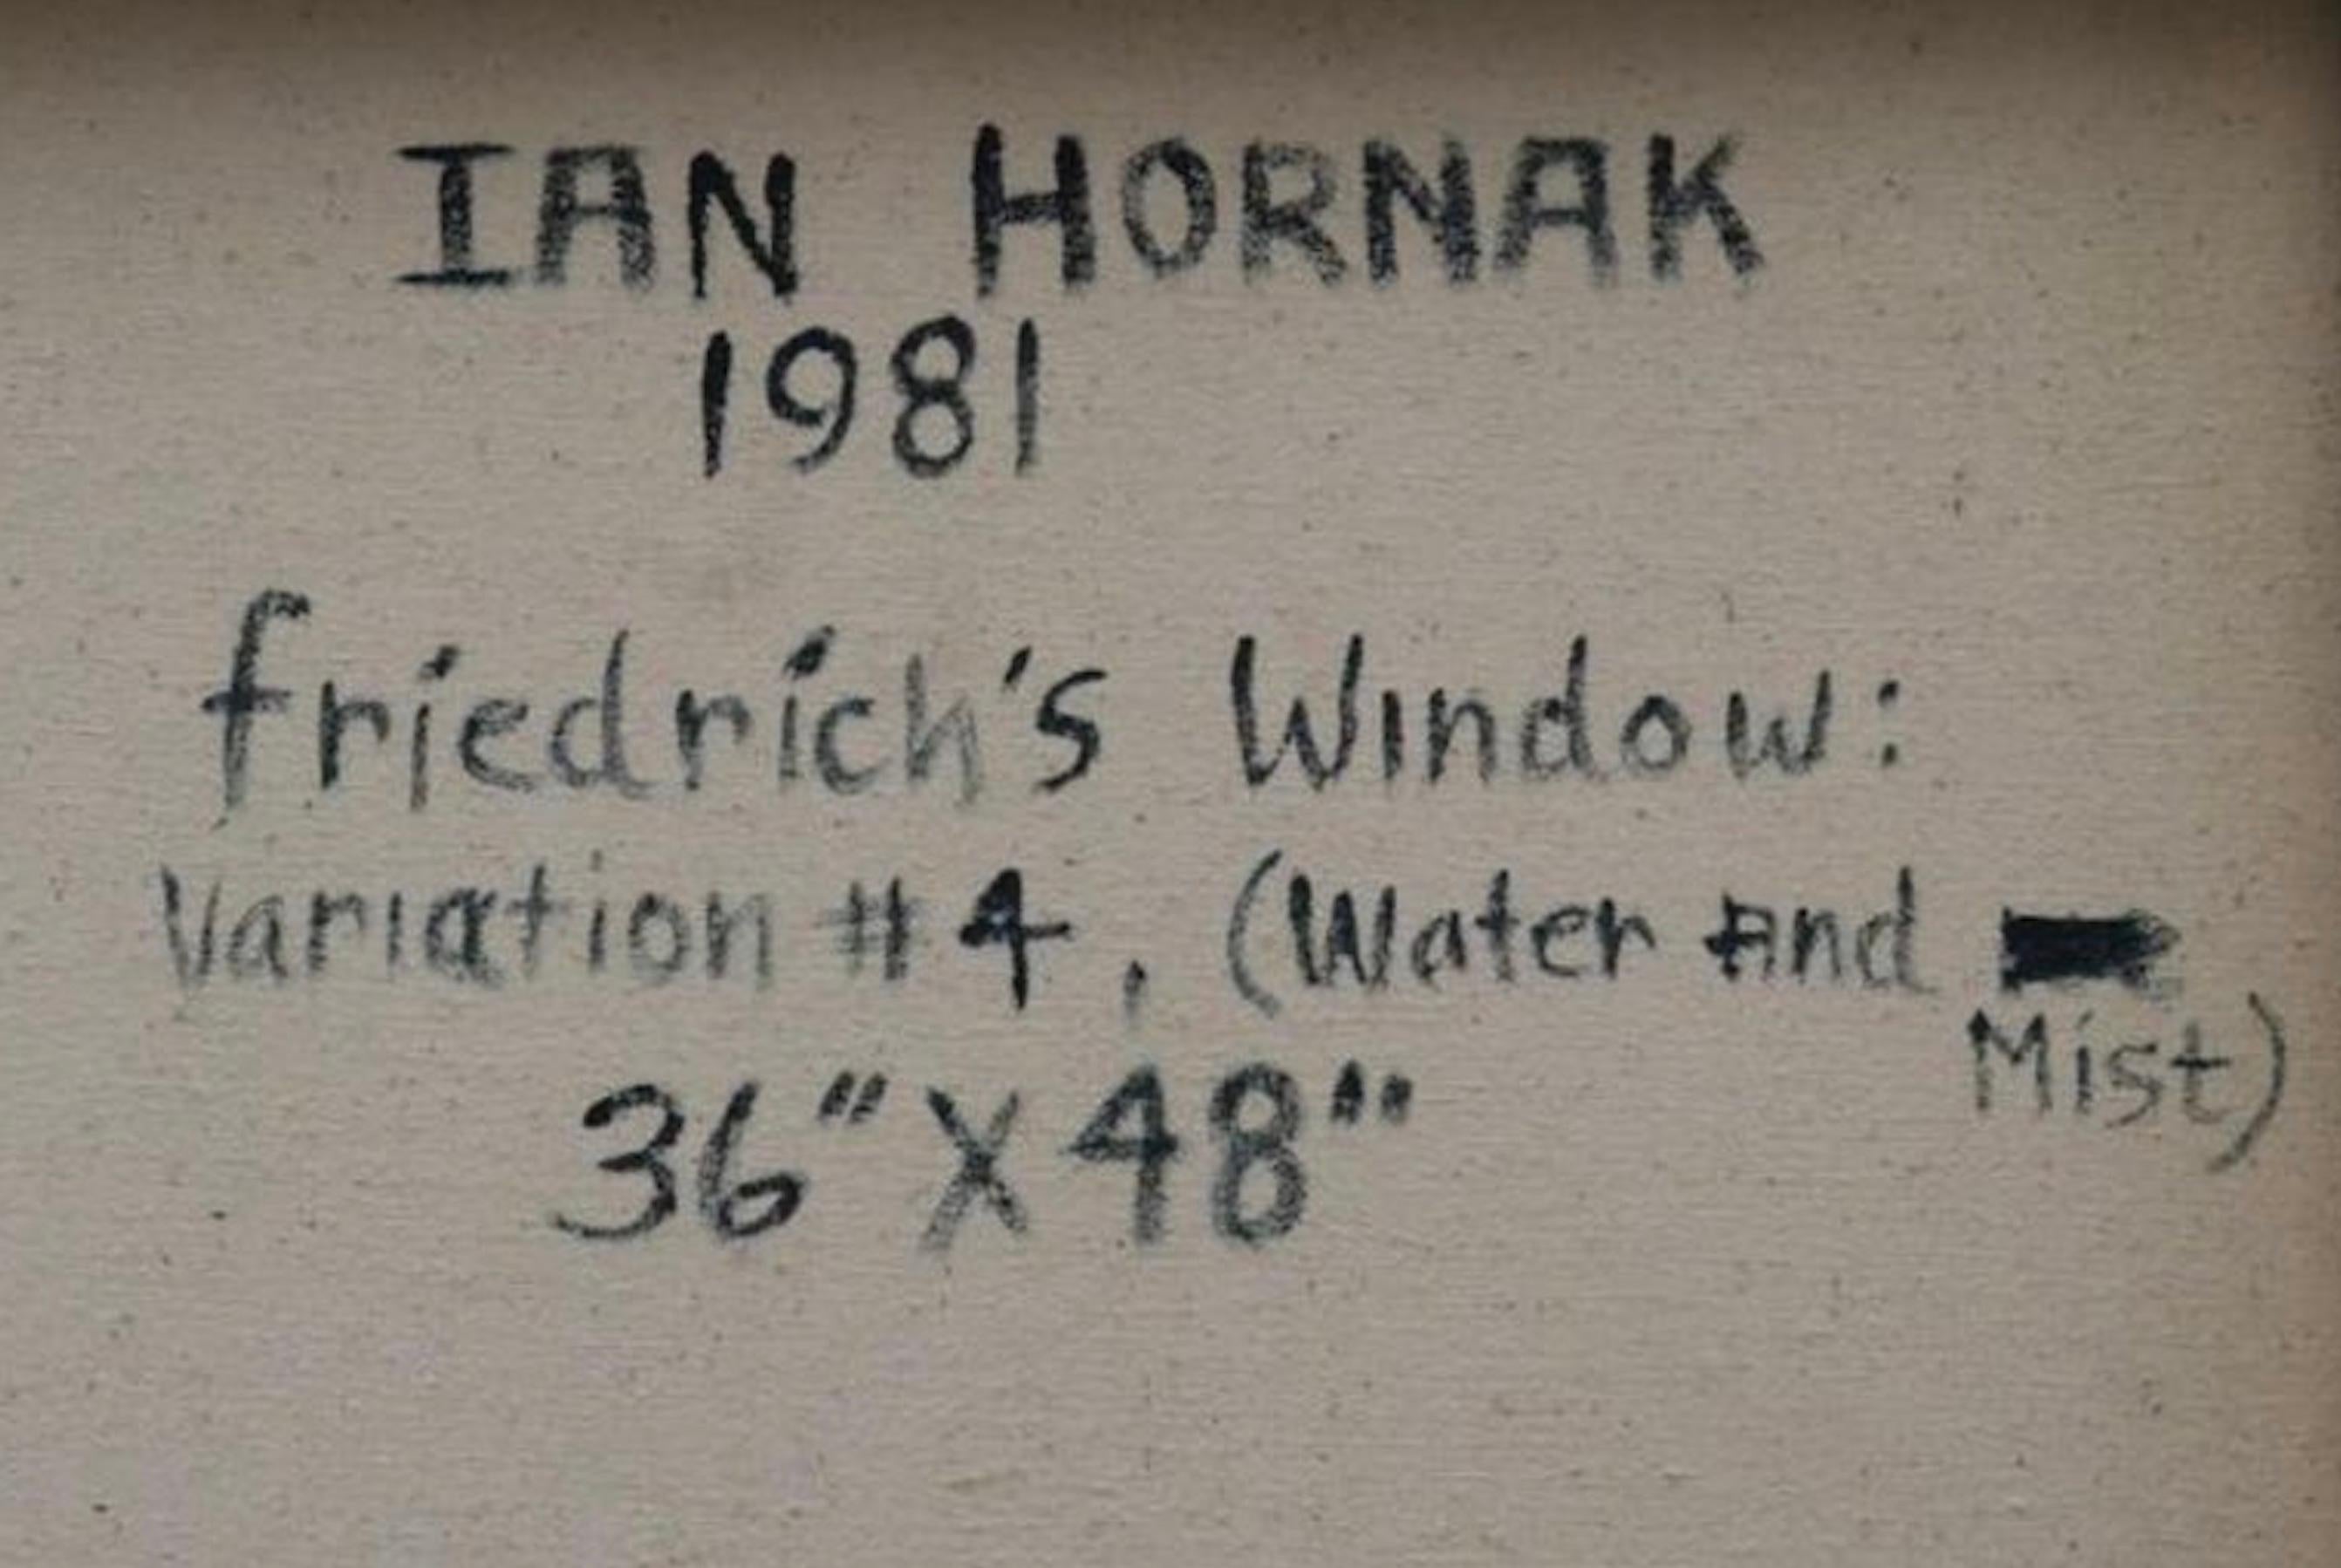 IAN HORNAK
1981
friedrich's Window:
Variation #4, (Water And
Mist)
36" X 48"